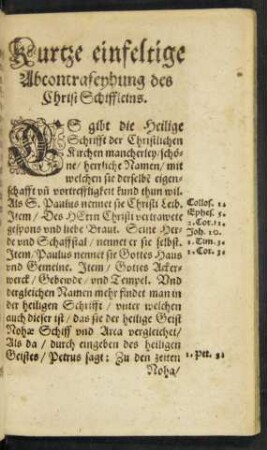 Kurtze einfeltige
Abcontrafeyhung des
Christ Schiffleins.
ES gibt die Heilige
Schrifft der Christlichen
Kirchen mancherley/schö-
ne/ herrliche Namen/ mit
welchen sie derselbē eigen-
schafft vñ vortreffligkeit kund thun wil.
Als S. Paulus nennet sie Christi Leib. Collos. 1.
Item/ Des HErrn Christi vertrawete Ephes. 5.
gespons vnd liebe Braut. Seine Her- 2. Cor. 11.
de vnd Schaffstal/ nennet er sie selbst. Joh. 10.
Item/ Paulus nennet sie Gottes Haus 1. Tim. 3.
vnd Gemeine. Item/ Gottes Acker- 1. Cor. 3.
werck/ Gebewde/ vnd Tempel. Vnd
dergleichen Namen mehr findet man in
der heiligen Schrifft/ vnter welchen
auch dieser ist/ das sie der heilige Geist
Nohæ Schiff vnd Arca vergleichet/
Als da/ durch eingeben des heiligen
Geistes/ Petrus sagt: Zu den zeiten 1. Pet. 3.
Noha/